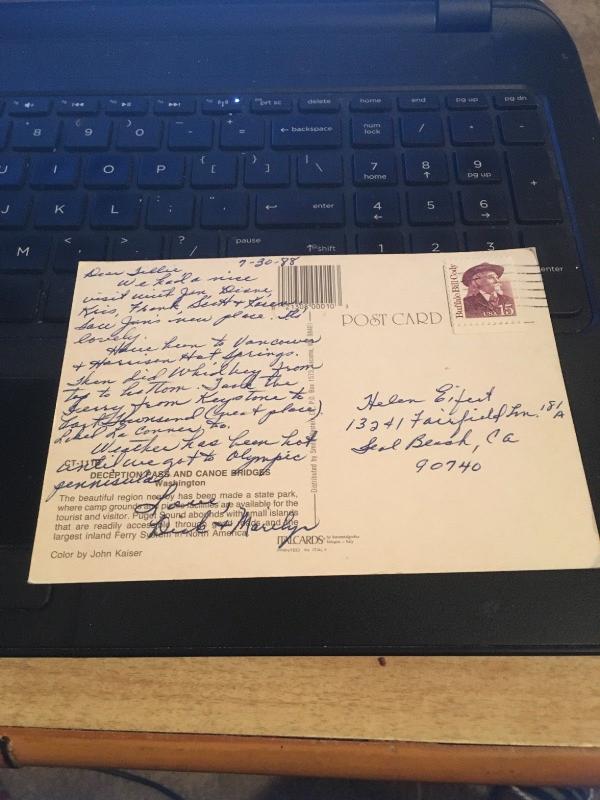 prt sc
delete
home
end
pg up
pg dn
8
9
0
-
+
=
← backspace
num
lock
/
*
-
U
I
O
P
{
[
}
]
|
\
7
home
8
↑
9
pg up
+
J
K
L
:
;
"
'
← enter
4
←
5
6
→
M
<
>
?
pause
↑shift
1
2
3
enter
7-30-88
Dear
We had a nice
visit with Jim, Diane,
Kris, Frank, Scott &
Saw Jim's new place. Its
lovely.
Have been to Vancouver
& Harrison Hot Springs.
Then did Whidbey from
top to bottom. Took the
ferry from Keystone to
Port Townsend (great place).
Liked La Conner, to.
Weather has been hot
until we got to Olympic
penninsula.
Love,
Dick & Marilyn
DECEPTION PASS AND CANOE BRIDGES
Washington
The beautiful region nearby has been made a state park,
where camp grounds and picnic facilities are available for the
tourist and visitor. Puget Sound abounds with small islands
that are readily accessible through and the
largest inland Ferry System in North America.
Color by John Kaiser
Distributed by
P.O. Box
POST CARD
Buffalo Bill Cody
USA 15
Helen Eifert
13241 Fairfield Ln. 181
A
Seal Beach, Ca
90740
ITALCARDS
bologna - italy
PRINTED IN ITALY